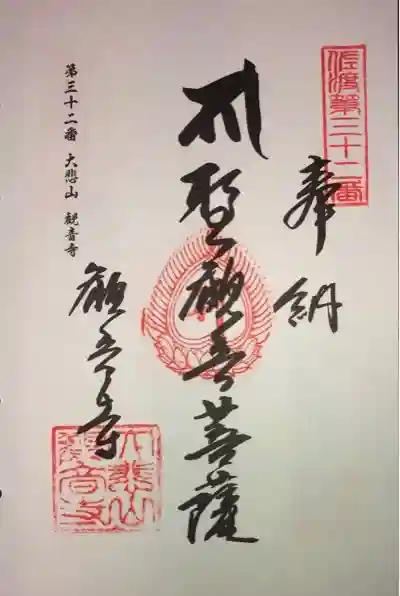 佐渡第三十二番
奉納
聖観音菩薩
観音寺
大悲山観音寺
第三十二番 大悲山 観音寺